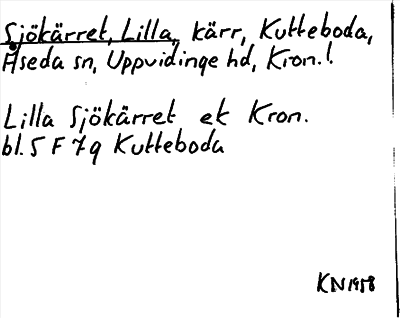 Sjökärret, Lilla, kärr, Kutteboda,
Åseda sn, Uppvidinge hd, Kron.!
Lilla Sjökärret ek Kron.
bl. 5 F 7 g Kutteboda
KN 1958